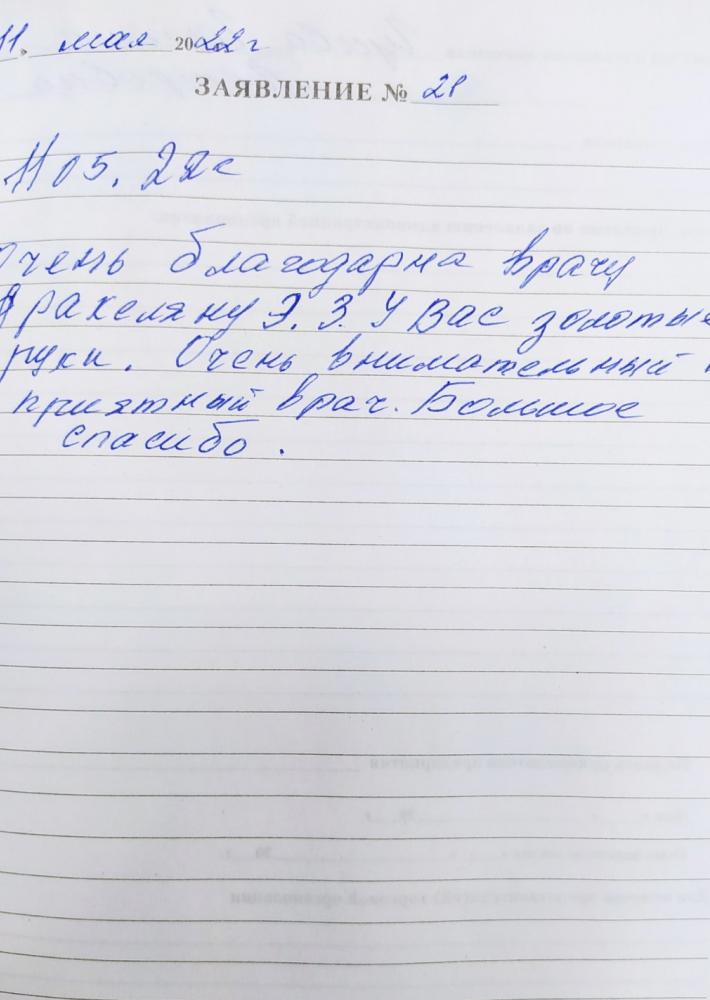 11. мая 2022 г
ЗАЯВЛЕНИЕ № 21
11 05. 22г
Очень благодарна врачу
Аракеляну Э. З. У Вас золотые
руки. Очень внимательный
приятный врач. Большое
спасибо.